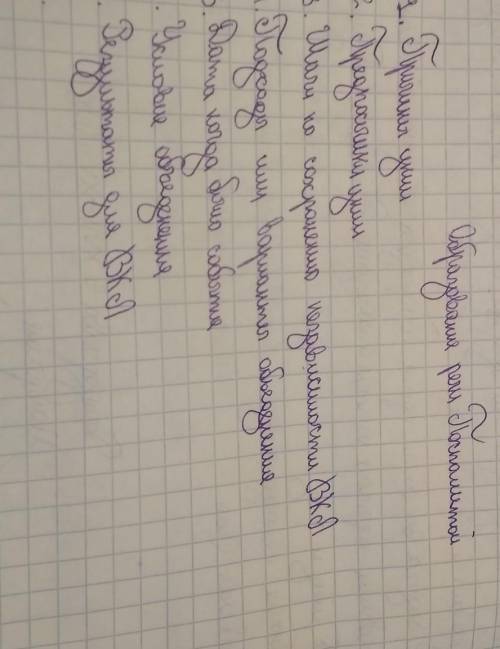 Образование речи Посполитой
1. Причины унии
2. Предпосылки унии
3. Шаги по сохранению независимости ВКЛ
. Подходы или варианты объединения
. Дата когда было событие
. Условие объединения
. Результаты для ВКЛ